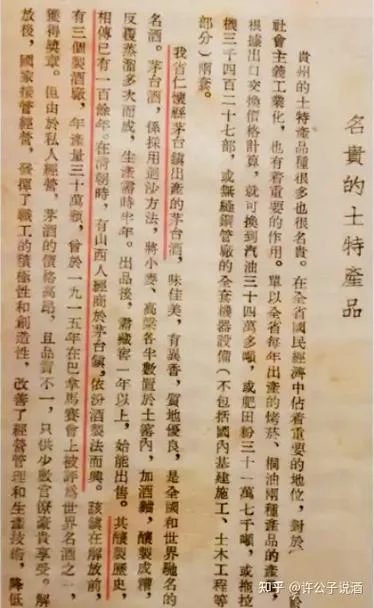 名貴的土特產品
貴州的土特產品種很多也很名貴。在全省國民經濟中佔着重要的地位，對於
社會主義工業化，也有着重要的作用。單以全省每年出產的烤菸、桐油兩種產品的產
根據出口交換價格計算，就可換到汽油三十四萬多噸，或肥田粉三十一萬七千噸，或拖拉
機三千四百二十七部，或無縫鋼管廠的全套機器設備（不包括國內基建施工、土木工程等
部分）兩套。
我省仁懷縣茅台鎮出產的茅台酒，味佳美，有異香，質地優良，是全國和世界馳名的
名酒。茅台酒，係採用迴沙方法，將小麥、高粱各半數置於土窖內，加酒麯，釀製成糟，
反覆蒸溜多次而成，生產需時半年。出品後，需藏窖一年以上，始能出售。其釀製歷史，
相傳已有一百餘年。在清朝時，有山西人經商於茅台鎮，依汾酒製法而興。該鎮在解放前，
有三個製酒廠，年產量三十萬瓶，曾於一九一五年在巴拿馬賽會上被評為世界名酒之一，
獲得獎章。但由於私人經營，茅酒的價格高昂，且品質不一，只供少數官僚豪貴享受。解
放後，國家接管經營，發揮了職工的積極性和創造性，改善了經營管理和生產技術，降低
知乎 @许公子说酒